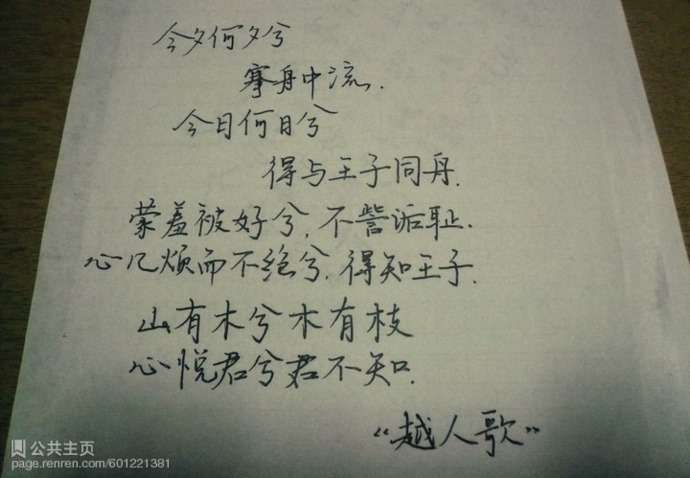 今夕何夕兮
搴舟中流.
今日何日兮
得与王子同舟.
蒙羞被好兮.不訾诟耻.
心几烦而不绝兮.得知王子.
山有木兮木有枝
心悦君兮君不知.
“越人歌”
公共主页
page.renren.com/601221381